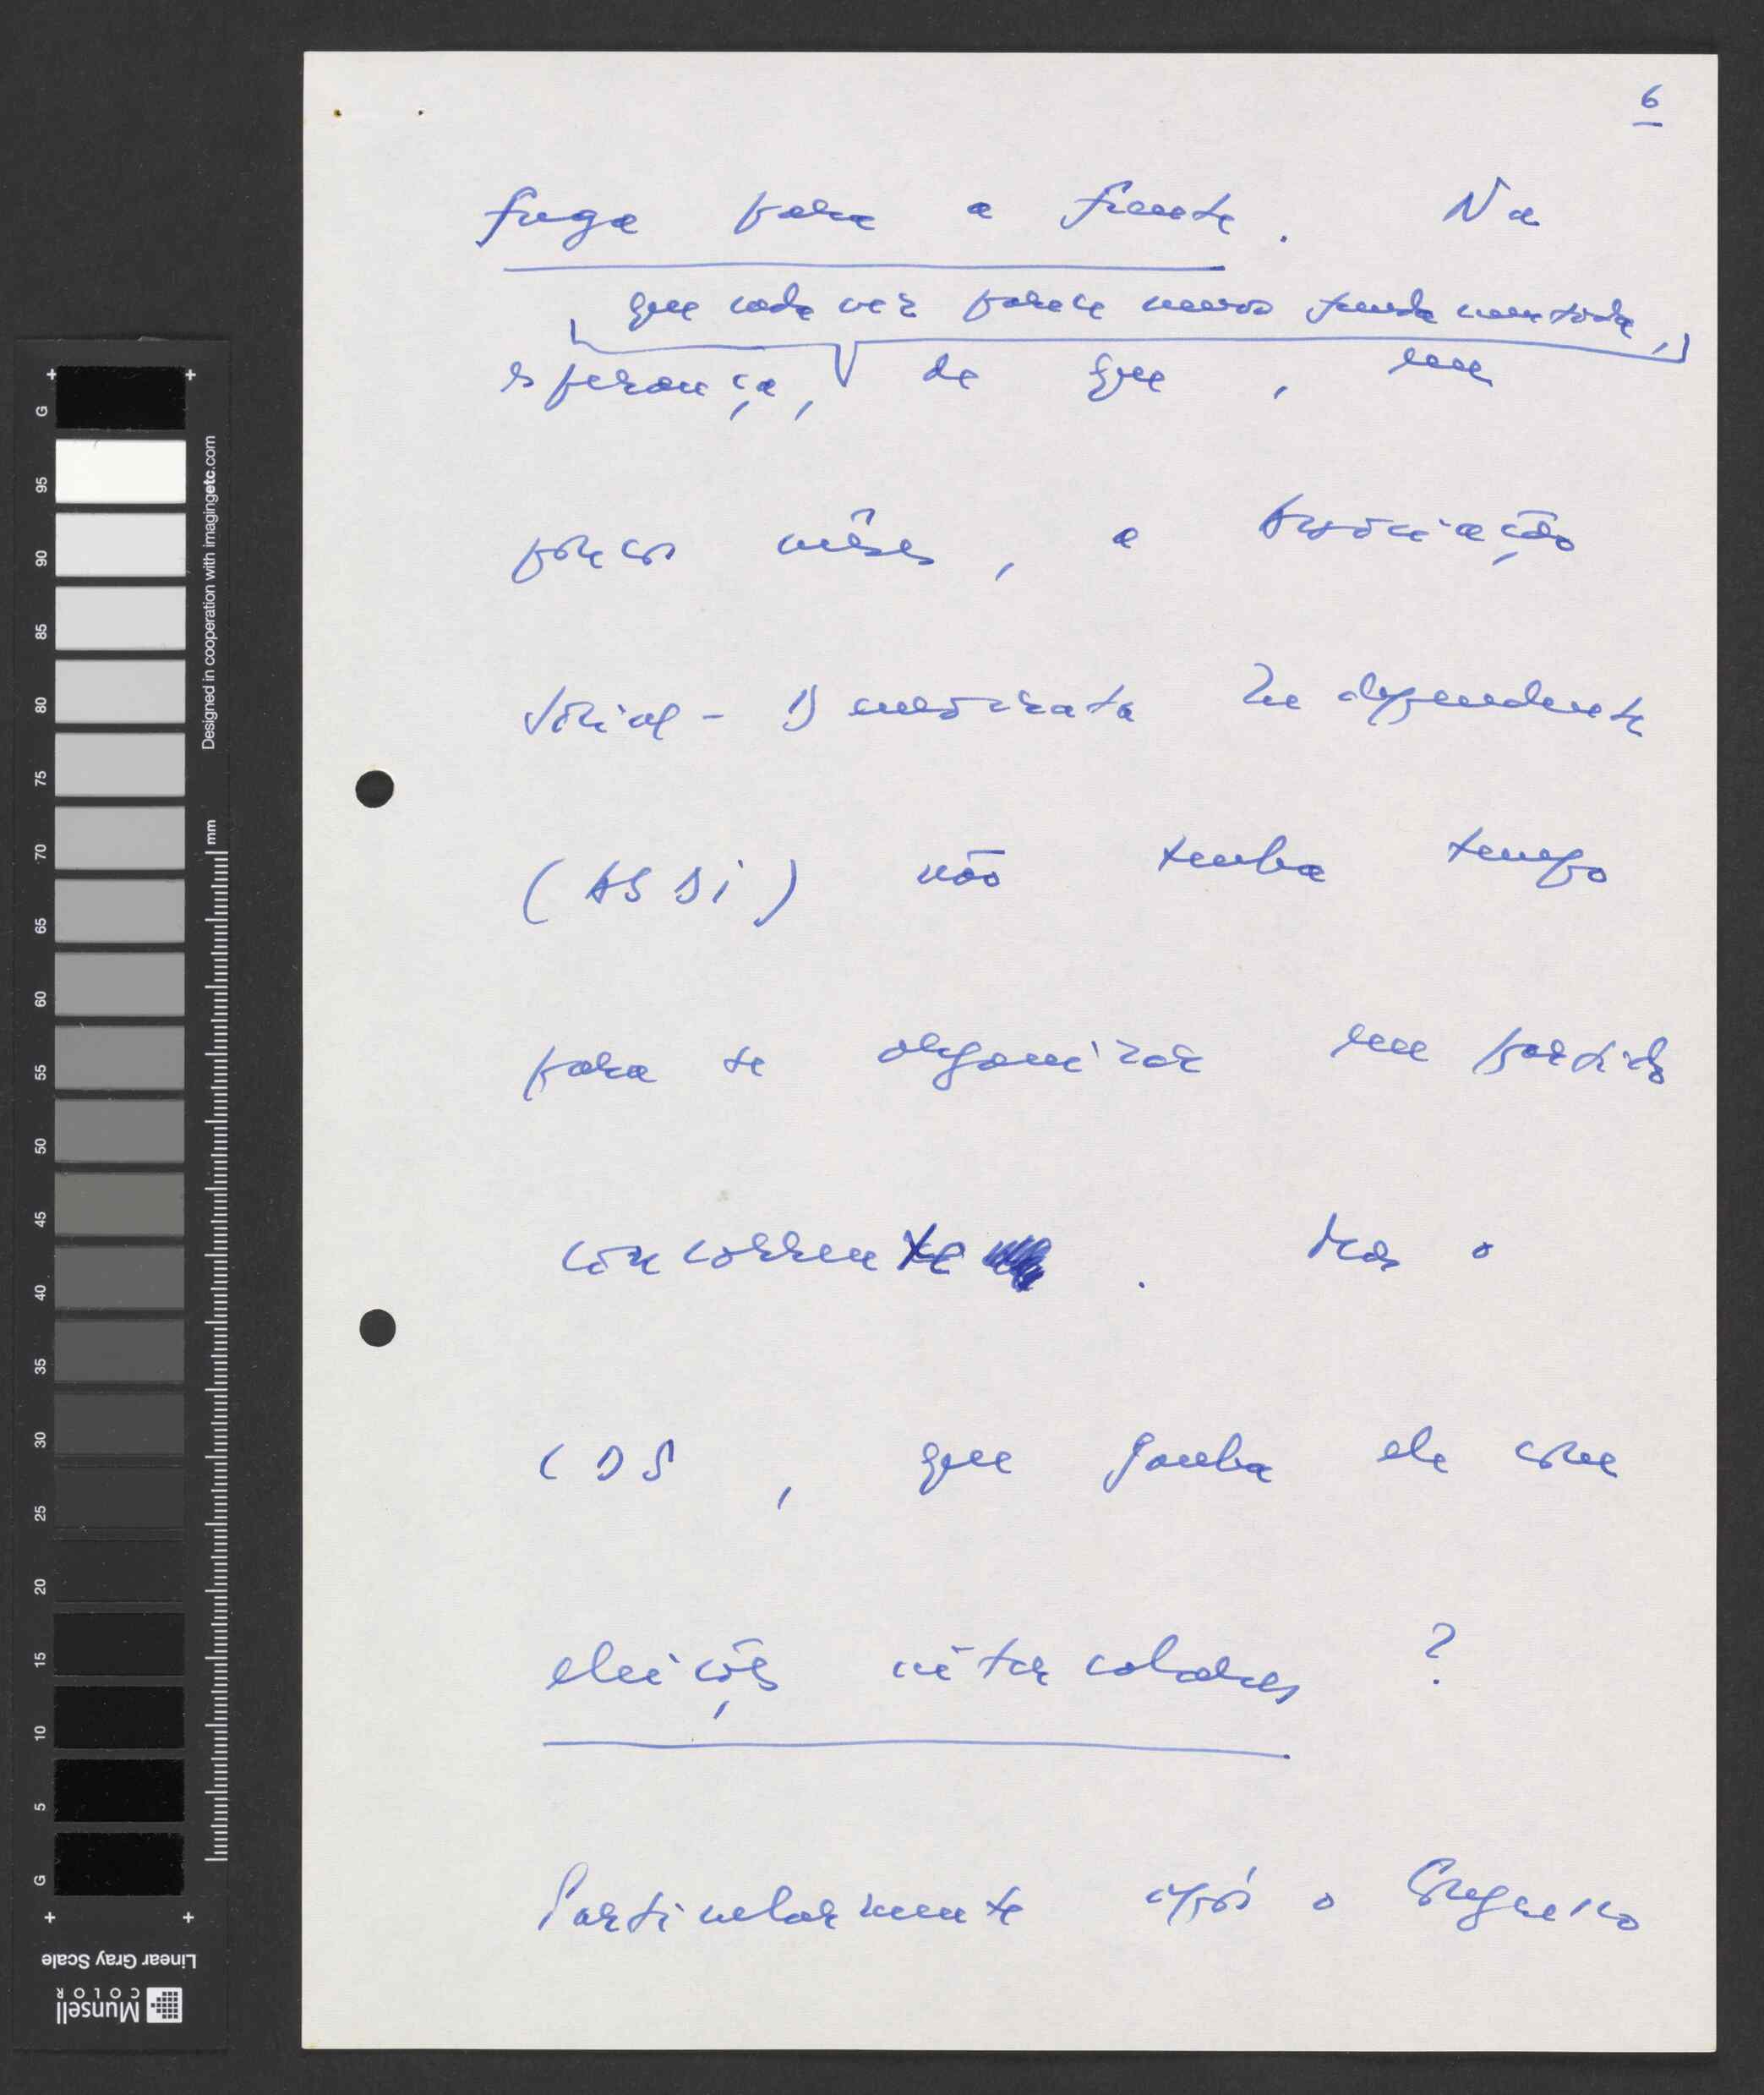 6
fuga para a frente. Na
que cada vez parece menos fundamentada,
esperança, de que, em
poucos mêses, a Associação
Social-Democrata Independente
(ASDI) não tenha tempo
para se organizar em partido
concorrente. Mas o
CDS, que ganha ele com
eleições intercalares?
Particularmente após o Congresso
G 95 90 85 80 75 70 65 60 55 50 45 40 35 30 25 20 15 10 5 G
Designed in cooperation with imagingetc.com
mm
Linear Gray Scale
Munsell
COLOR